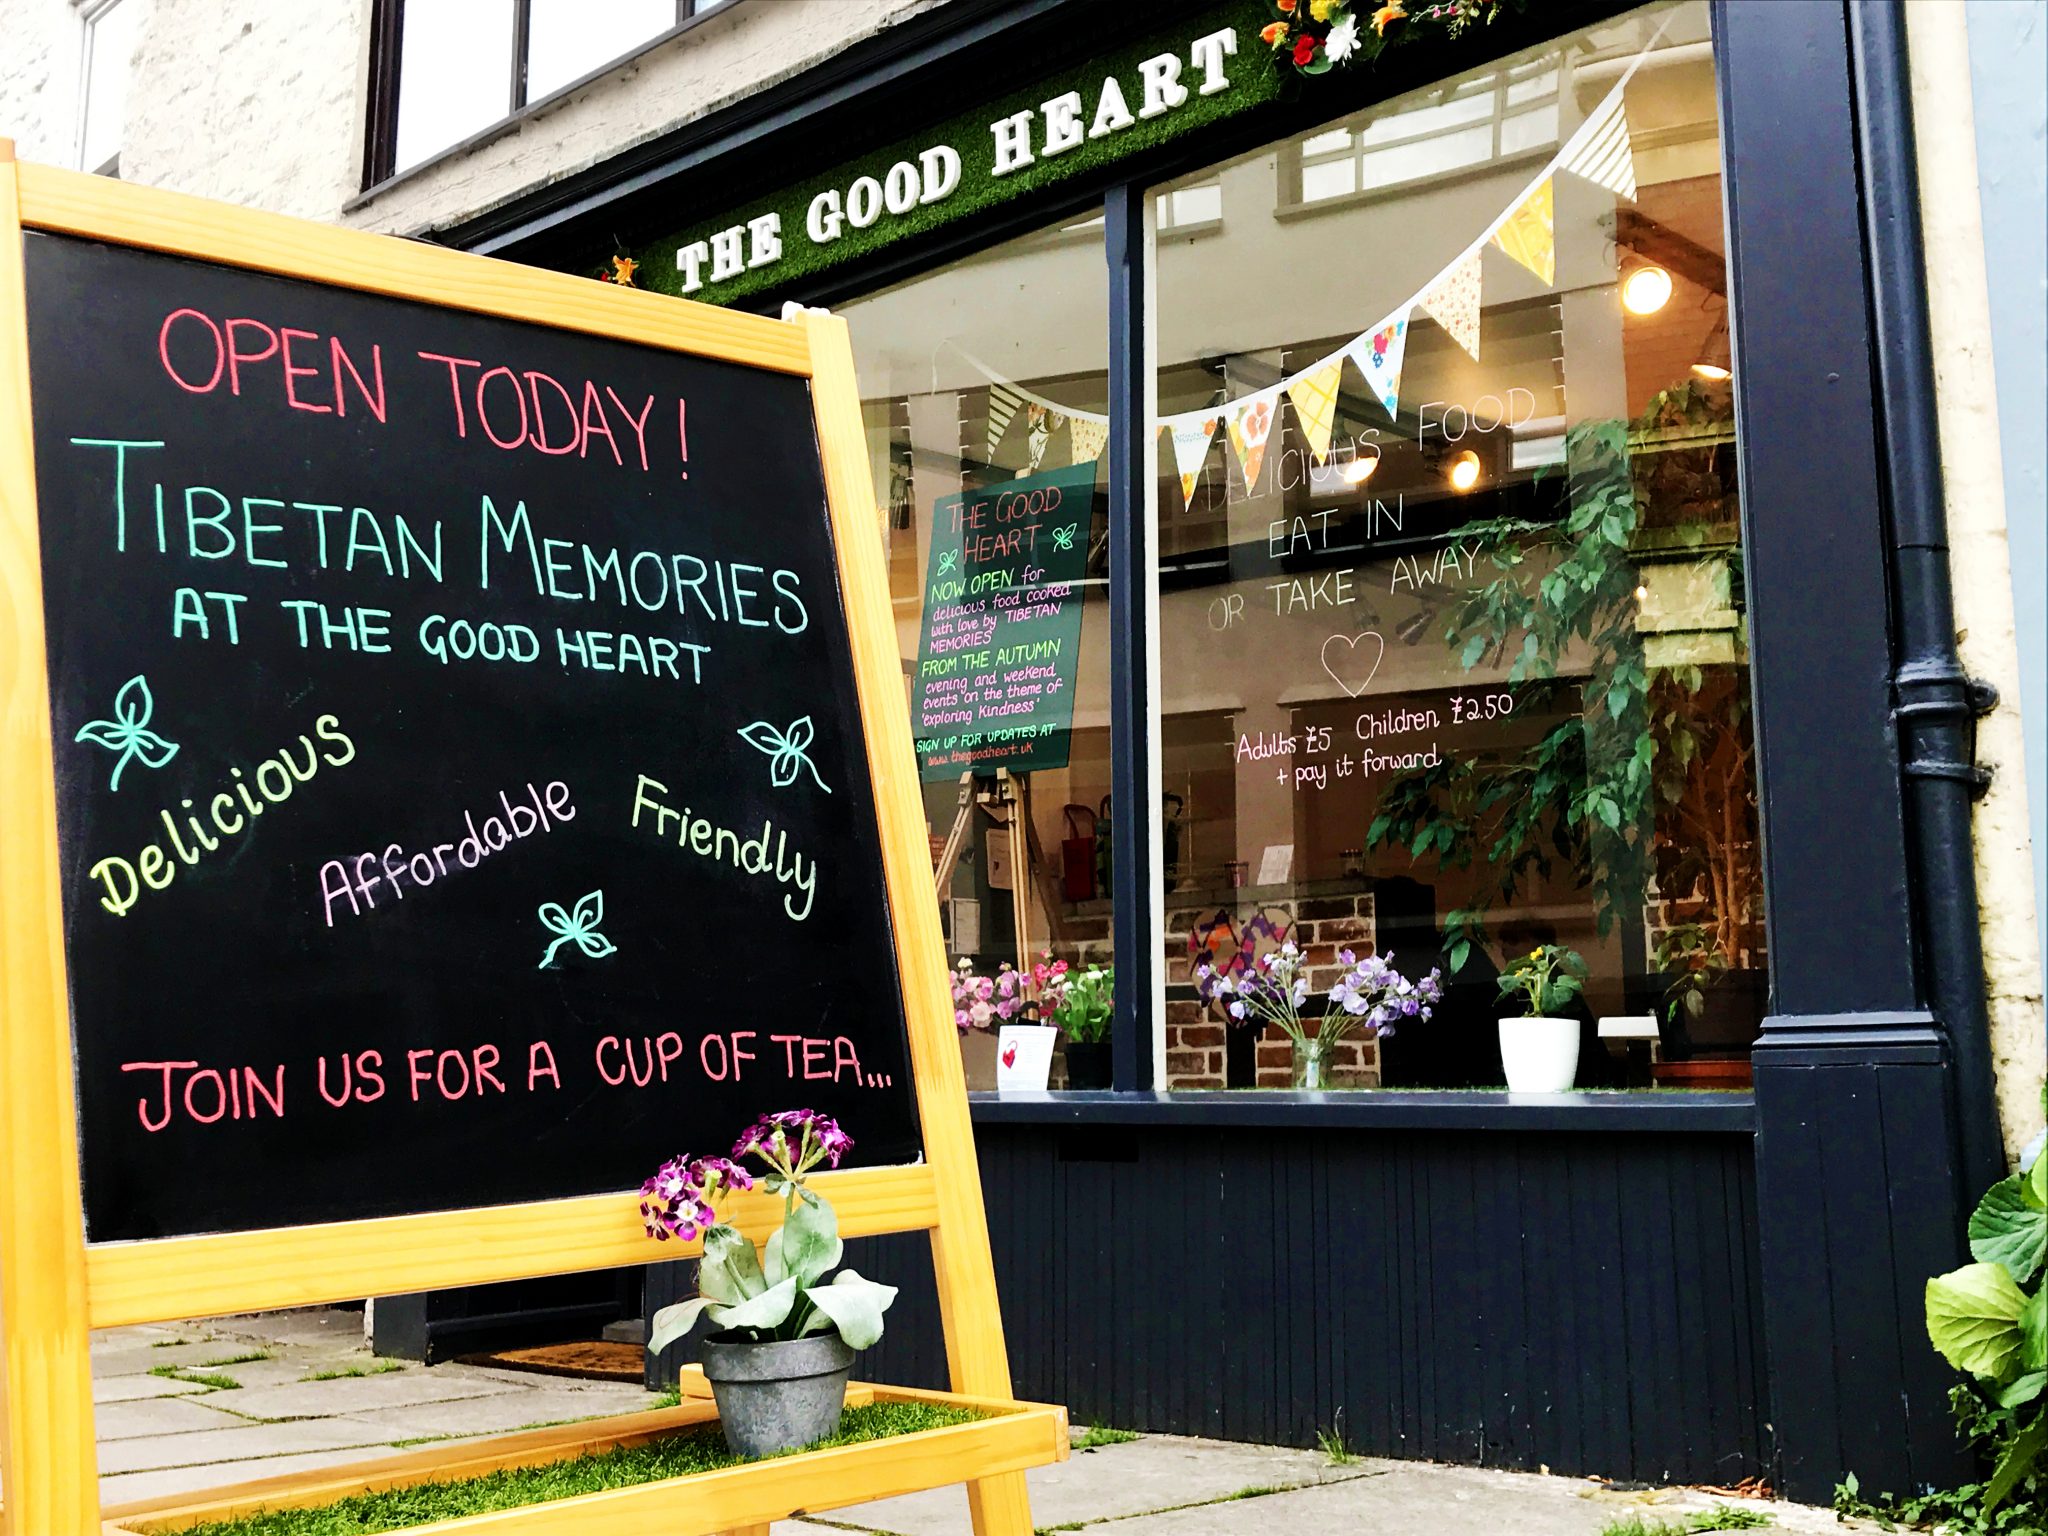 THE GOOD HEART
OPEN TODAY!
TIBETAN MEMORIES
AT THE GOOD HEART
Delicious
Affordable
Friendly
JOIN US FOR A CUP OF TEA...
THE GOOD
HEART
NOW OPEN for
delicious food cooked
with love by TIBETAN
MEMORIES
FROM THE AUTUMN
evening and weekend
events on the theme of
'exploring kindness'
SIGN UP FOR UPDATES AT
www.thegoodheart.uk
DELICIOUS FOOD
EAT IN
OR TAKE AWAY
Adults £5 Children £2.50
+ pay it forward